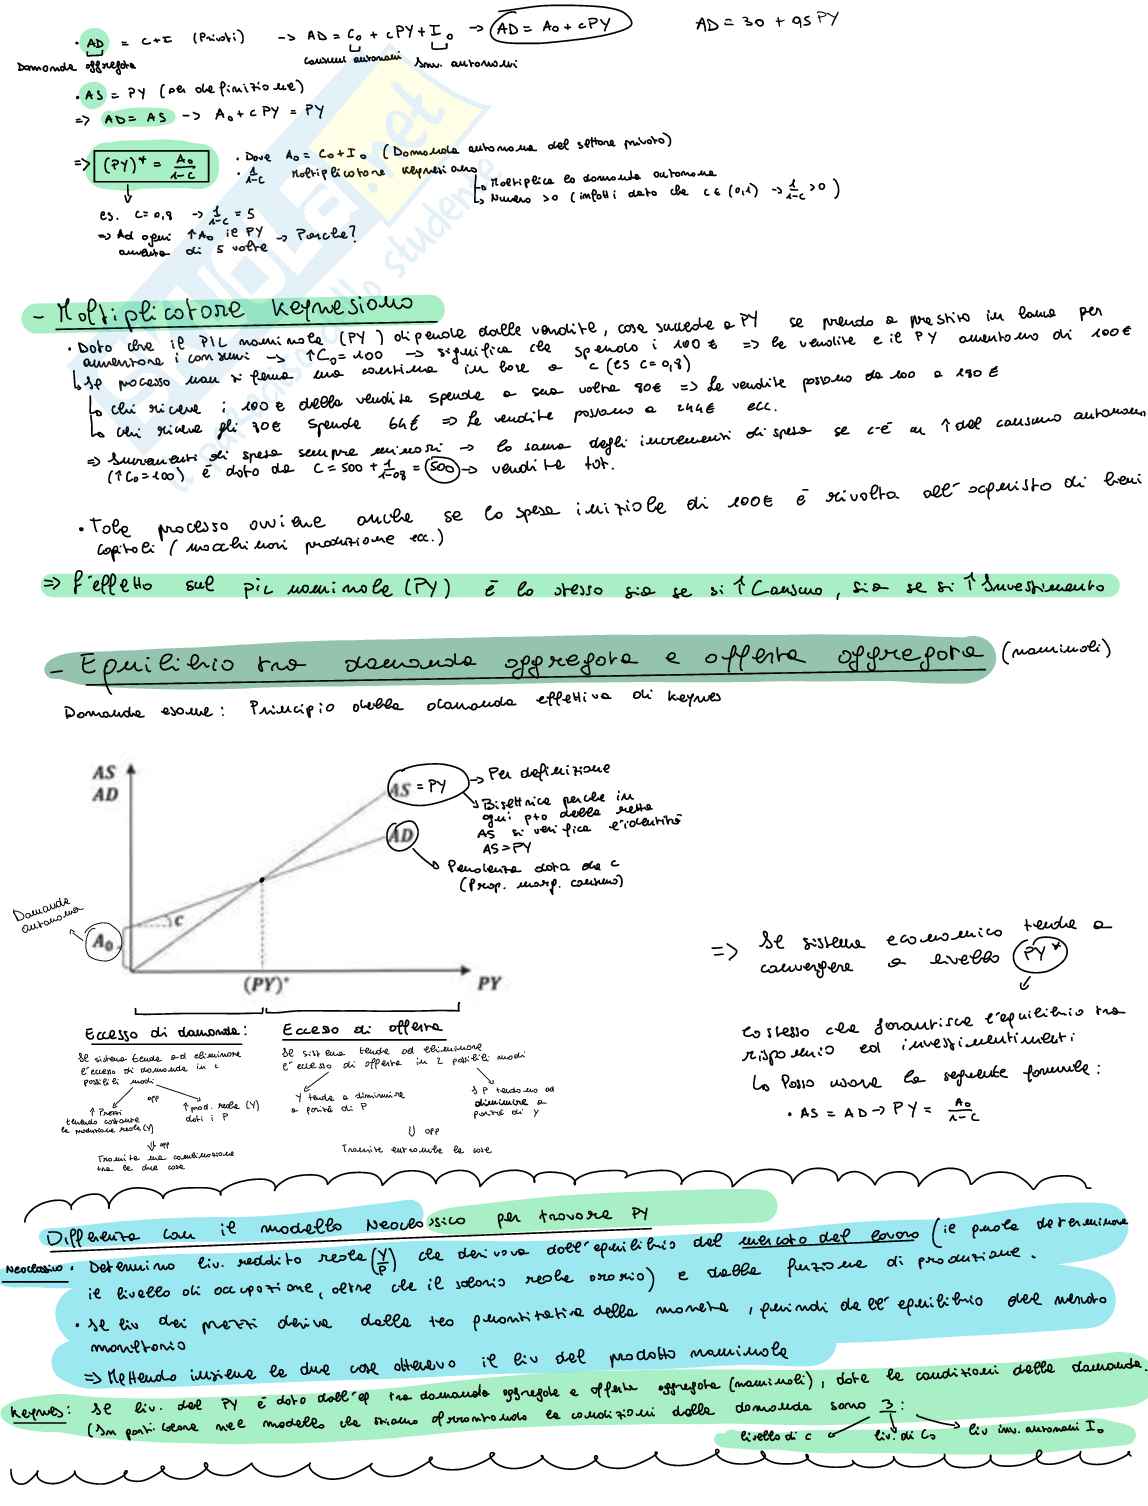 · AD = C+I (Privati) -> AD = C₀ + cPY + I₀ -> AD = A₀ + cPY    AD = 30 + 95 PY
Domanda aggregata    Consumi autonomi    Inv. autonomi
· AS = PY (per definizione)
=> AD = AS -> A₀ + c PY = PY
=> (PY)* = A₀/1-c    · Dove A₀ = C₀ + I₀ (Domanda autonoma del settore privato)
· 1/1-c Moltiplicatore keynesiano
-> Moltiplica la domanda autonoma
-> Numero >0 (infatti dato che c ∈ (0,1) -> 1/1-c >0)
es. c=0,8 -> 1/1-c = 5
=> Ad ogni ↑A₀ il PY -> Perché?
aumenta di 5 volte
- Moltiplicatore keynesiano
· Dato che il PIL nominale (PY) dipende dalle vendite, cosa succede a PY se prendo a prestito in banca per
aumentare i consumi -> ↑C₀=100 -> significa che spendo i 100€ => le vendite e il PY aumentano di 100€
Il processo non si ferma ma continua in base a c (es c=0,8)
-> Chi riceve i 100€ della vendita spende a sua volta 80€ => Le vendite passano da 100 a 180€
-> Chi riceve gli 80€ spende 64€ => Le vendite passano a 244€ ecc.
=> Incrementi di spesa sempre minori -> la somma degli incrementi di spesa se c'è un ↑ del consumo autonomo
(↑C₀=100) è data da C = 500 + 1/1-08 = 500 -> vendite tot.
· Tale processo avviene anche se la spesa iniziale di 100€ è rivolta all'acquisto di beni
capitali (macchinari produzione ecc.)
=> L'effetto sul PIL nominale (PY) è lo stesso sia se si ↑ Consumo, sia se si ↑ Investimento
- Equilibrio tra domanda aggregata e offerta aggregata (nominali)
Domanda esame: Principio della domanda effettiva di keynes
AS
AD
AS = PY -> Per definizione
Bisettrice perché in
ogni pto della retta
AS si verifica l'identità
AS=PY
AD
Pendenza data da c
(Prop. marg. consumo)
Domanda
autonoma
A₀
c
(PY)*
PY
=> Il sistema economico tende a
convergere a livello PY*
Lo stesso che garantisce l'equilibrio tra
risparmio ed investimenti
Lo Posso usare la seguente formula:
· AS = AD -> PY = A₀/1-c
Eccesso di domanda:
Il sistema tende ad eliminare
l'eccesso di domanda in 2
possibili modi
opp
↑ Prezzi
tenendo costante
la produzione reale (Y)
↑ prod. reale (Y)
dati i P
opp
Tramite una combinazione
tra le due cose
Eccesso di offerta
Il sistema tende ad eliminare
l'eccesso di offerta in 2 possibili modi
Y tende a diminuire
a parità di P
I P tendono ad
diminuire a
parità di Y
opp
Tramite entrambe le cose
Differenza con il modello Neoclassico per trovare PY
Neoclassico · Determino liv. reddito reale (Y/P) che derivava dall'equilibrio del mercato del lavoro (il quale determinava
il livello di occupazione, oltre che il salario reale orario) e dalla funzione di produzione.
· Il liv dei prezzi deriva dalla teo quantitativa della moneta, quindi dall'equilibrio del mercato
monetario
=> Mettendo insieme le due cose ottenevo il liv del prodotto nominale
Keynes: Il liv. del PY è dato dall'eq tra domanda aggregata e offerta aggregata (nominali), date le condizioni della domanda.
(In particolare nel modello che stiamo affrontando le condizioni della domanda sono 3:
livello di c    liv. di C₀    liv inv. autonomi I₀